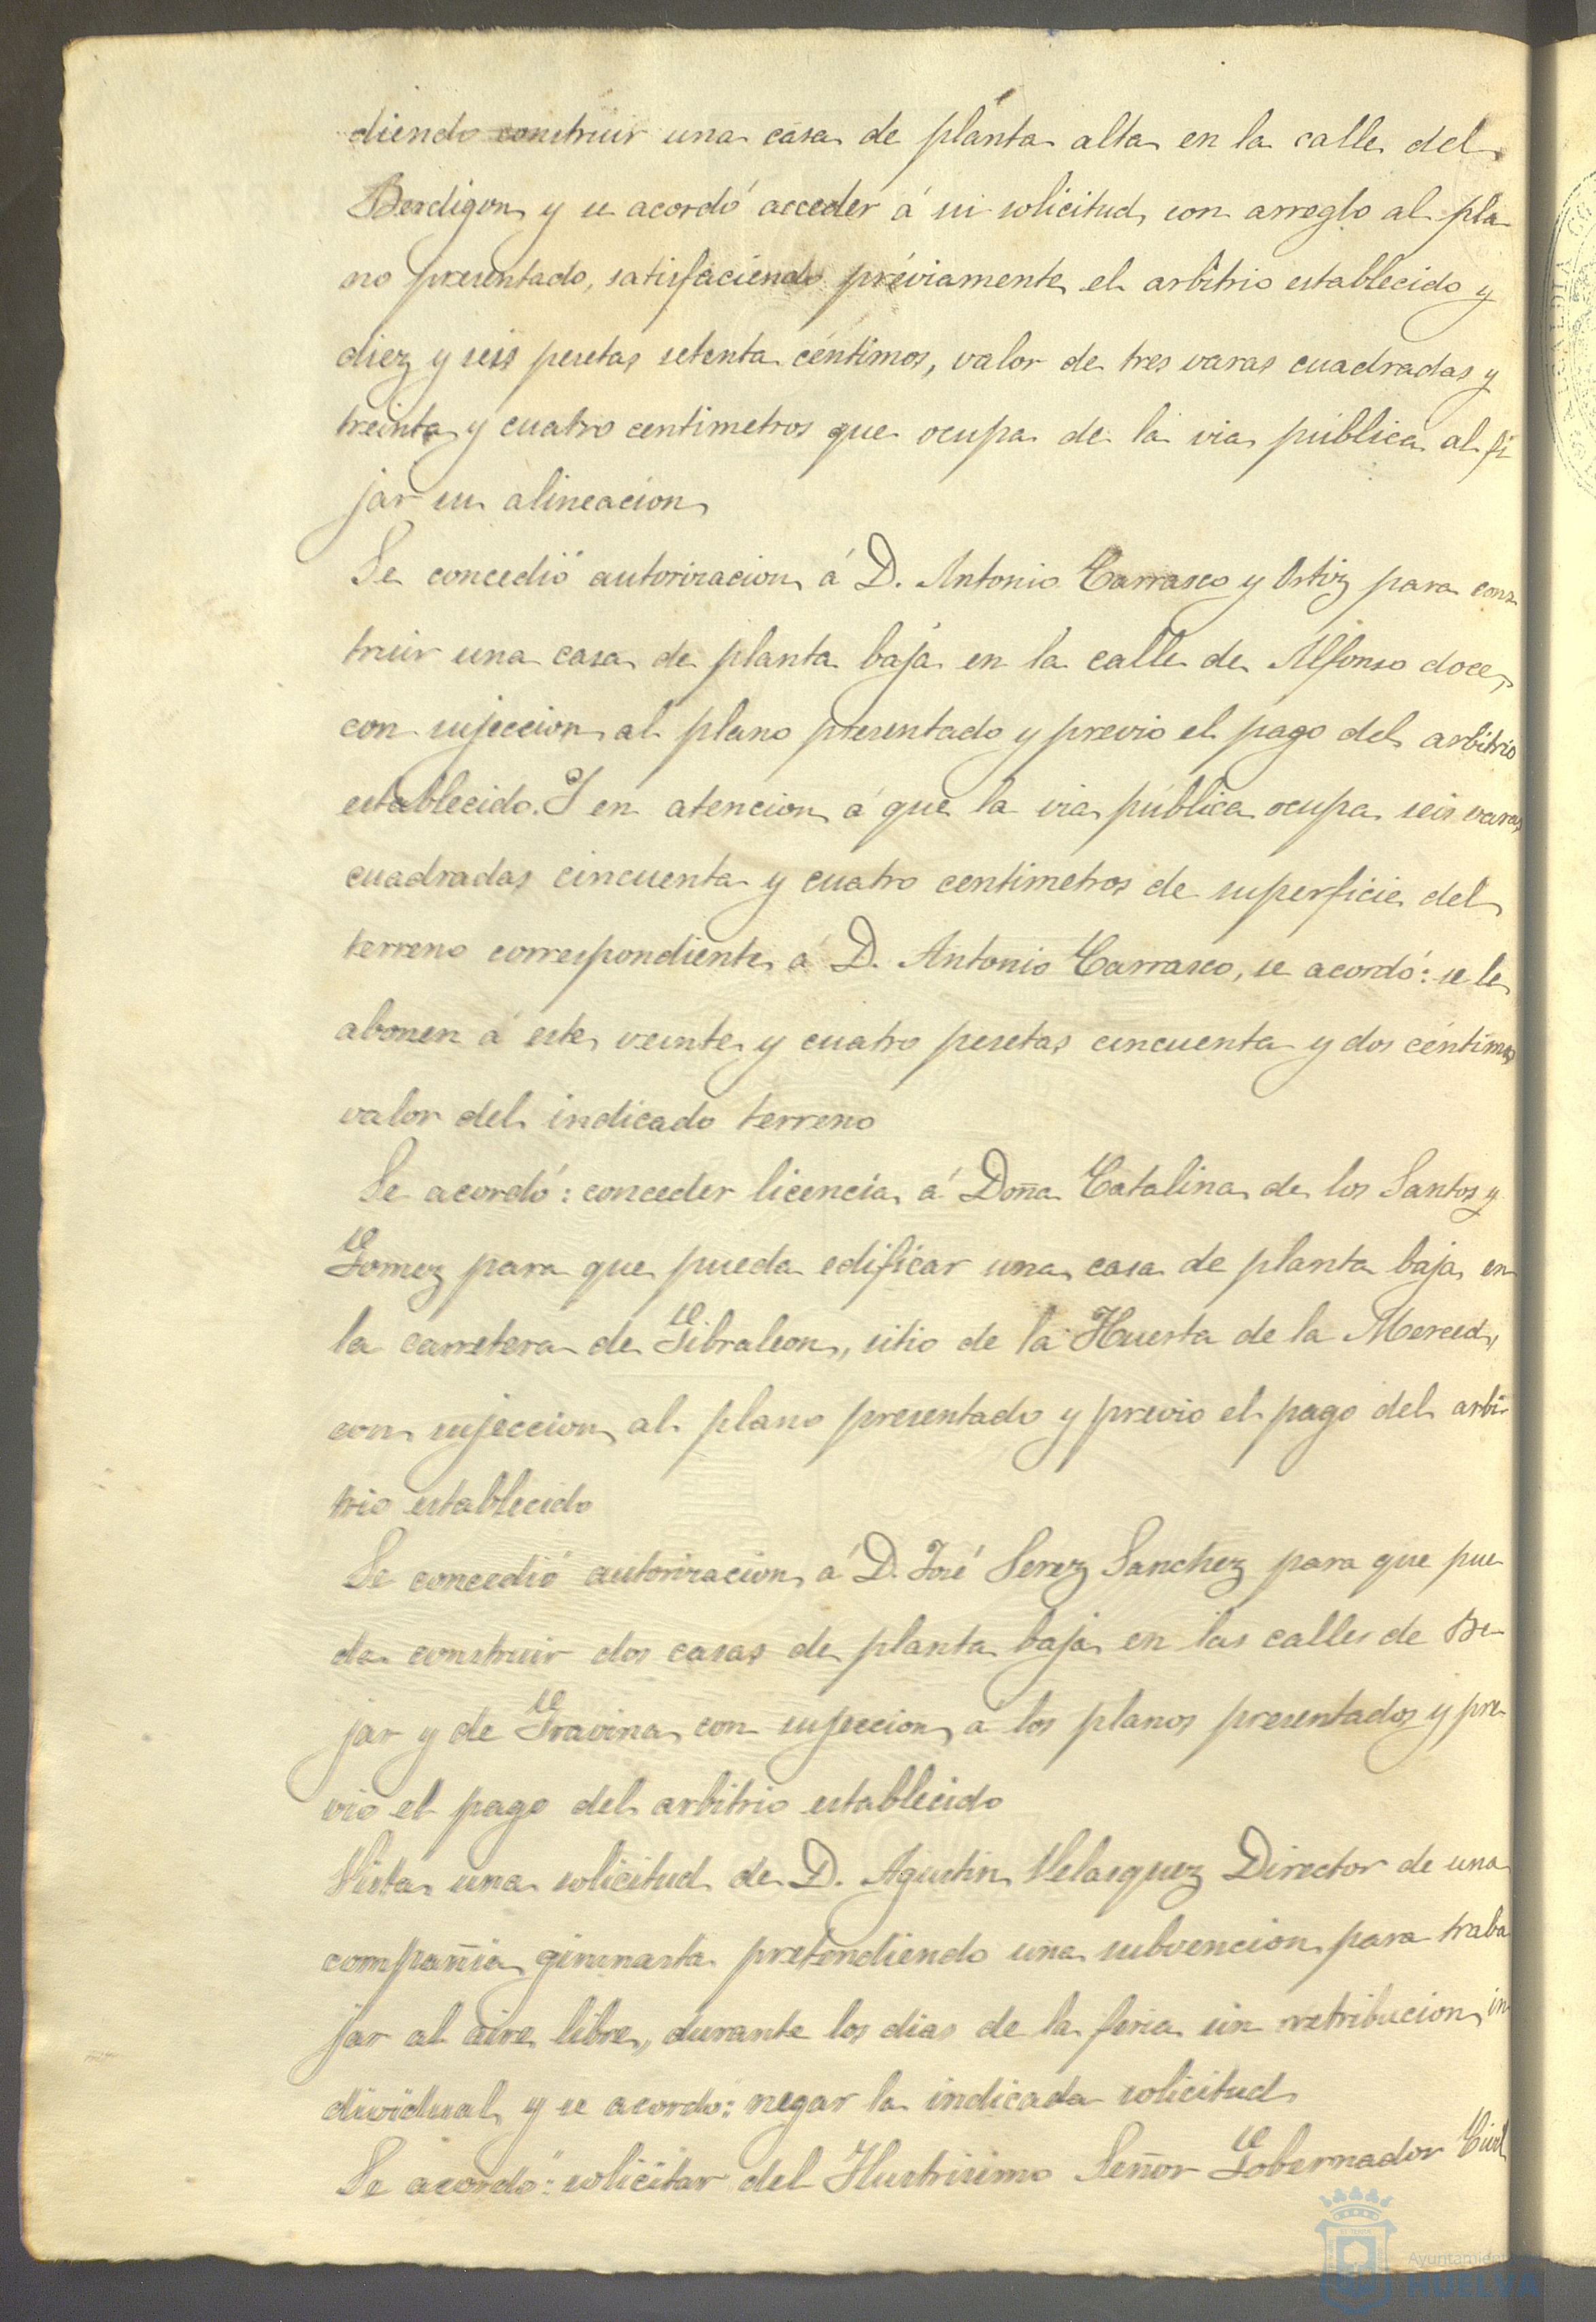 diendo construir una casa de planta alta en la calle del
Berdigon y se acordó acceder á su solicitud, con arreglo al pla
no presentado, satisfaciendo préviamente el arbitrio establecido y
diez y seis pesetas setenta céntimos, valor de tres varas cuadradas y
treinta y cuatro centimetros que ocupa de la via pública al fi
jar su alineacion
Se concedió autorizacion á D. Antonio Carrasco y Ortiz para cons
truir una casa de planta baja en la calle de Alfonso doce,
con sujeccion al plano presentado y previo el pago del arbitrio
establecido. Y en atencion á que la via pública ocupa seis varas
cuadradas cincuenta y cuatro centimetros de superficie del
terreno correspondiente á D. Antonio Carrasco, se acordó: se le
abonen á este veinte y cuatro pesetas cincuenta y dos céntimos
valor del indicado terreno
Se acordó: conceder licencia á Doña Catalina de los Santos y
Gomez para que pueda edificar una casa de planta baja en
la carretera de Gibraleon, sitio de la Huerta de la Merced,
con sujeccion al plano presentado y previo el pago del arbi-
trio establecido
Se concedió autorizacion á D. José Perez Sanchez para que pue-
da construir dos casas de planta baja en las calles de Be-
jar y de Gravina con sujeccion á los planos presentados y pre-
vio el pago del arbitrio establecido
Vista una solicitud de D. Agustin Velasquez Director de una
compañia gimnasta pretendiendo una subvencion para traba
jar al aire libre, durante los dias de la feria sin retribucion in
dividual, y se acordó: negar la indicada solicitud
Se acordó: solicitar del Ilustrisimo Señor Gobernador Civil
HUELVA